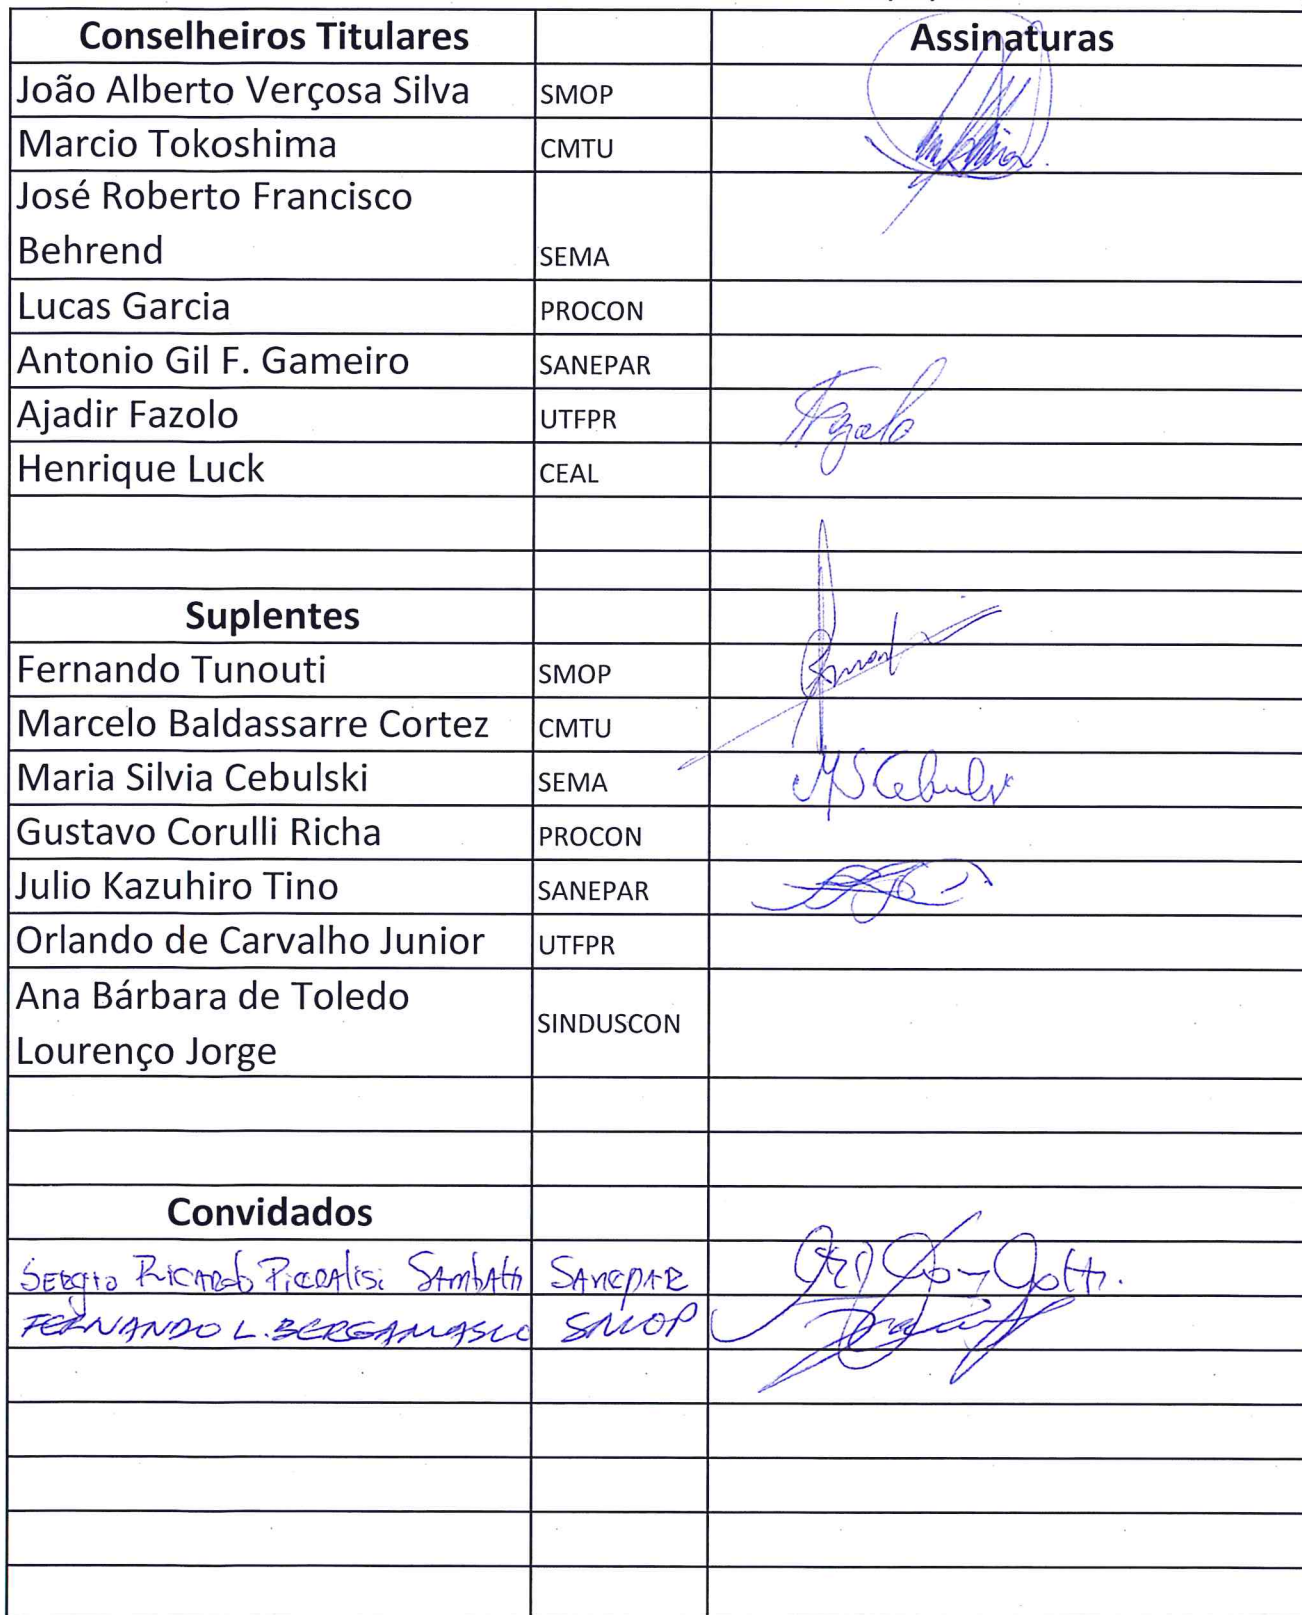 Conselheiros Titulares Assinaturas
João Alberto Verçosa Silva SMOP
Marcio Tokoshima CMTU
José Roberto Francisco
Behrend SEMA
Lucas Garcia PROCON
Antonio Gil F. Gameiro SANEPAR
Ajadir Fazolo UTFPR Fazolo
Henrique Luck CEAL
Suplentes
Fernando Tunouti SMOP
Marcelo Baldassarre Cortez CMTU
Maria Silvia Cebulski SEMA MSCebulski
Gustavo Corulli Richa PROCON
Julio Kazuhiro Tino SANEPAR
Orlando de Carvalho Junior UTFPR
Ana Bárbara de Toledo
Lourenço Jorge SINDUSCON
Convidados
Sergio Ricardo Piccalisi Sambatti Sanepar
FERNANDO L. BERGAMASCO SMOP